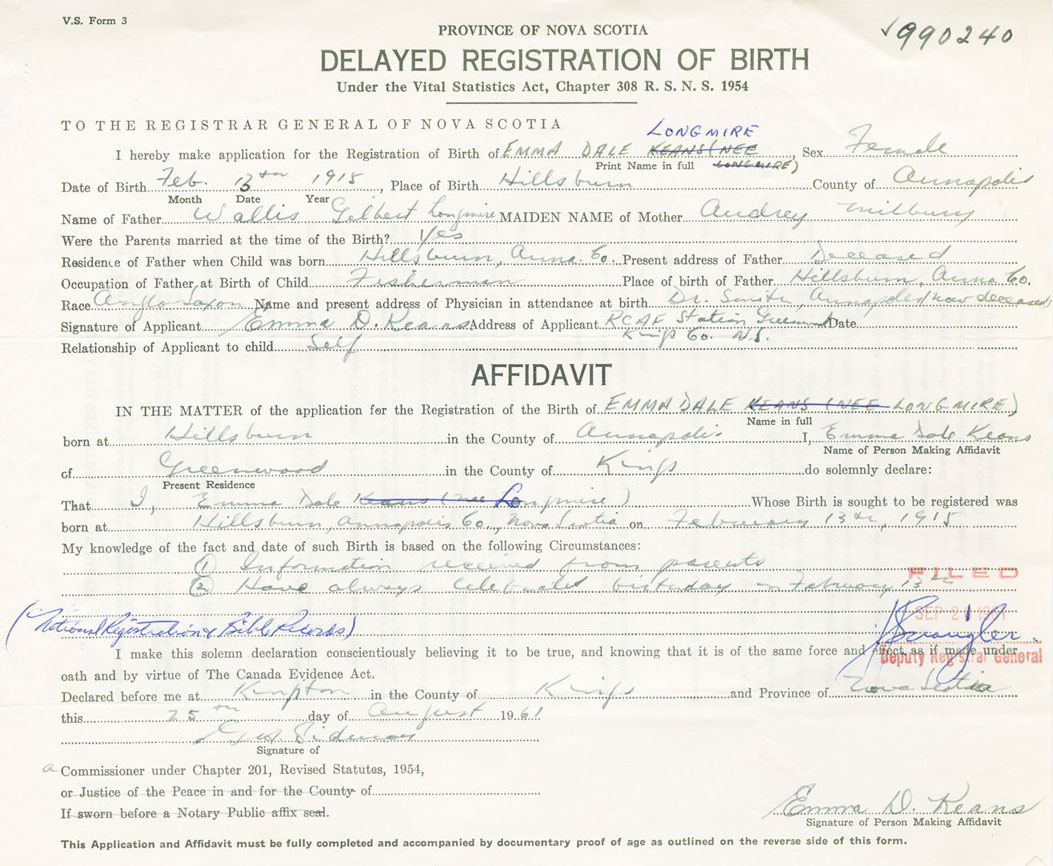 V.S. Form 3
990240
PROVINCE OF NOVA SCOTIA
DELAYED REGISTRATION OF BIRTH
Under the Vital Statistics Act, Chapter 308 R. S. N. S. 1954
TO THE REGISTRAR GENERAL OF NOVA SCOTIA
LONGMIRE
I hereby make application for the Registration of Birth of EMMA DALE KEANS (NEE LONGMIRE) Sex Female
Print Name in full
Date of Birth Feb. 13th 1915, Place of Birth Hillsburn County of Annapolis
Month Date Year
Name of Father Wallis Gilbert Longmire MAIDEN NAME of Mother Audrey Milbury
Were the Parents married at the time of the Birth? Yes
Residence of Father when Child was born Hillsburn, Anna. Co. Present address of Father Deceased
Occupation of Father at Birth of Child Fisherman Place of birth of Father Hillsburn, Anna Co.
Race Anglo Saxon Name and present address of Physician in attendance at birth Dr. Smith, Annapolis (now deceased)
Signature of Applicant Emma D. Keans Address of Applicant RCAF Station Greenwood Date
Kings Co. N.S.
Relationship of Applicant to child Self
AFFIDAVIT
IN THE MATTER of the application for the Registration of the Birth of EMMA DALE KEANS (NEE LONGMIRE)
Name in full
born at Hillsburn in the County of Annapolis I, Emma Dale Keans
Name of Person Making Affidavit
of Greenwood in the County of Kings do solemnly declare:
Present Residence
That I, Emma Dale Keans (nee Longmire) Whose Birth is sought to be registered was
born at Hillsburn, Annapolis Co., Nova Scotia on February 13th, 1915
My knowledge of the fact and date of such Birth is based on the following Circumstances:
① Information received from parents
② Have always celebrated birthday on February 13th
FILED
SEP 21 1961
(National Registration & Bible Records)
Deputy Registrar General
I make this solemn declaration conscientiously believing it to be true, and knowing that it is of the same force and effect as if made under
oath and by virtue of The Canada Evidence Act.
Declared before me at Kingston in the County of Kings and Province of Nova Scotia
this 25th day of August 1961
Signature of
a Commissioner under Chapter 201, Revised Statutes, 1954,
or Justice of the Peace in and for the County of
If sworn before a Notary Public affix seal.
Emma D. Keans
Signature of Person Making Affidavit
This Application and Affidavit must be fully completed and accompanied by documentary proof of age as outlined on the reverse side of this form.